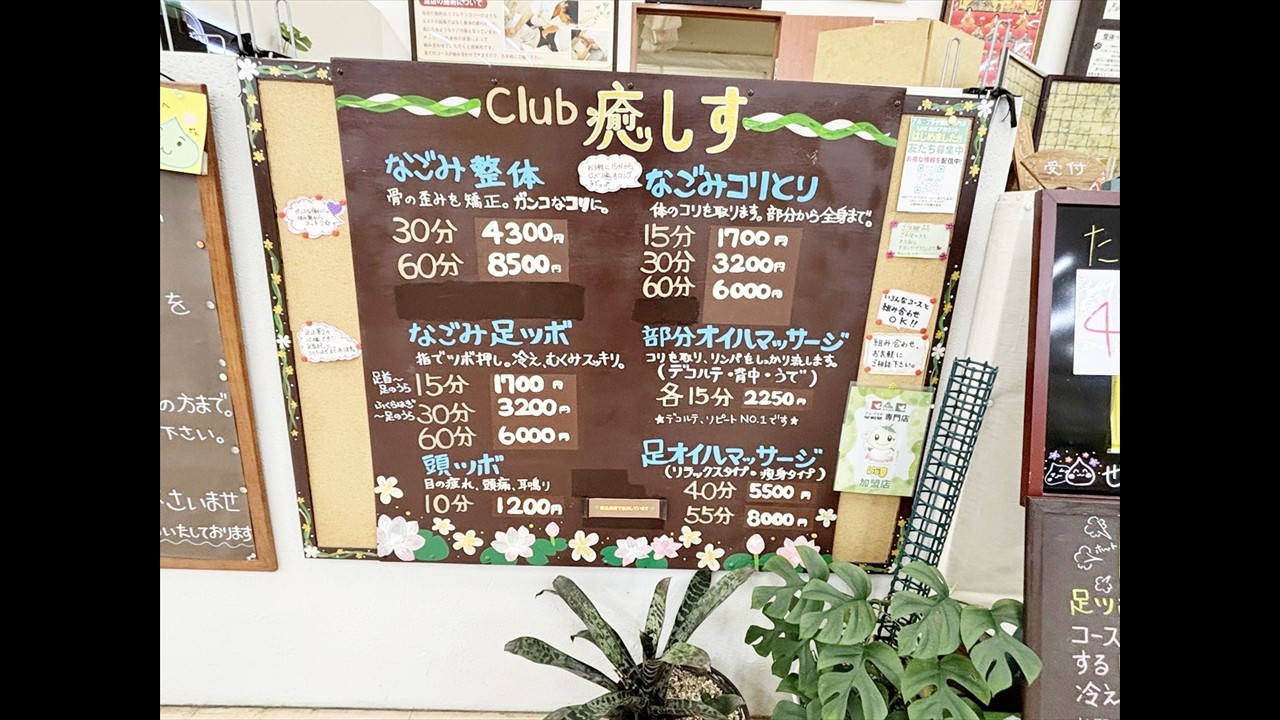 Club 癒しす
なごみ整体
骨の歪みを矯正。ガンコなコリに。
30分 4300円
60分 8500円
なごみコリとり
体のコリを取ります。部分から全身まで。
15分 1700円
30分 3200円
60分 6000円
なごみ足ツボ
指でツボ押し。冷え、むくみスッキリ。
足首〜足のうら 15分 1700円
ふくらはぎ〜足のうら 30分 3200円
60分 6000円
部分オイルマッサージ
コリを取り、リンパをしっかり流します。
(デコルテ・背中・うで)
各15分 2250円
★デコルテ、リピートNO.1です★
頭ツボ
目の疲れ、頭痛、耳鳴り
10分 1200円
足オイルマッサージ
(リラックスタイプ・痩身タイプ)
40分 5500円
55分 8000円
はじめました!!
友だち募集中
お得な情報を配信中!
いろんなコースと
組み合わせ
OK!!
組み合わせ、
お気軽に
ご相談下さい。
専門店
加盟店
受付
を
の方まで。
下さい。
さいませ
いたしております
た
せ
足ツ
コース
する
冷え